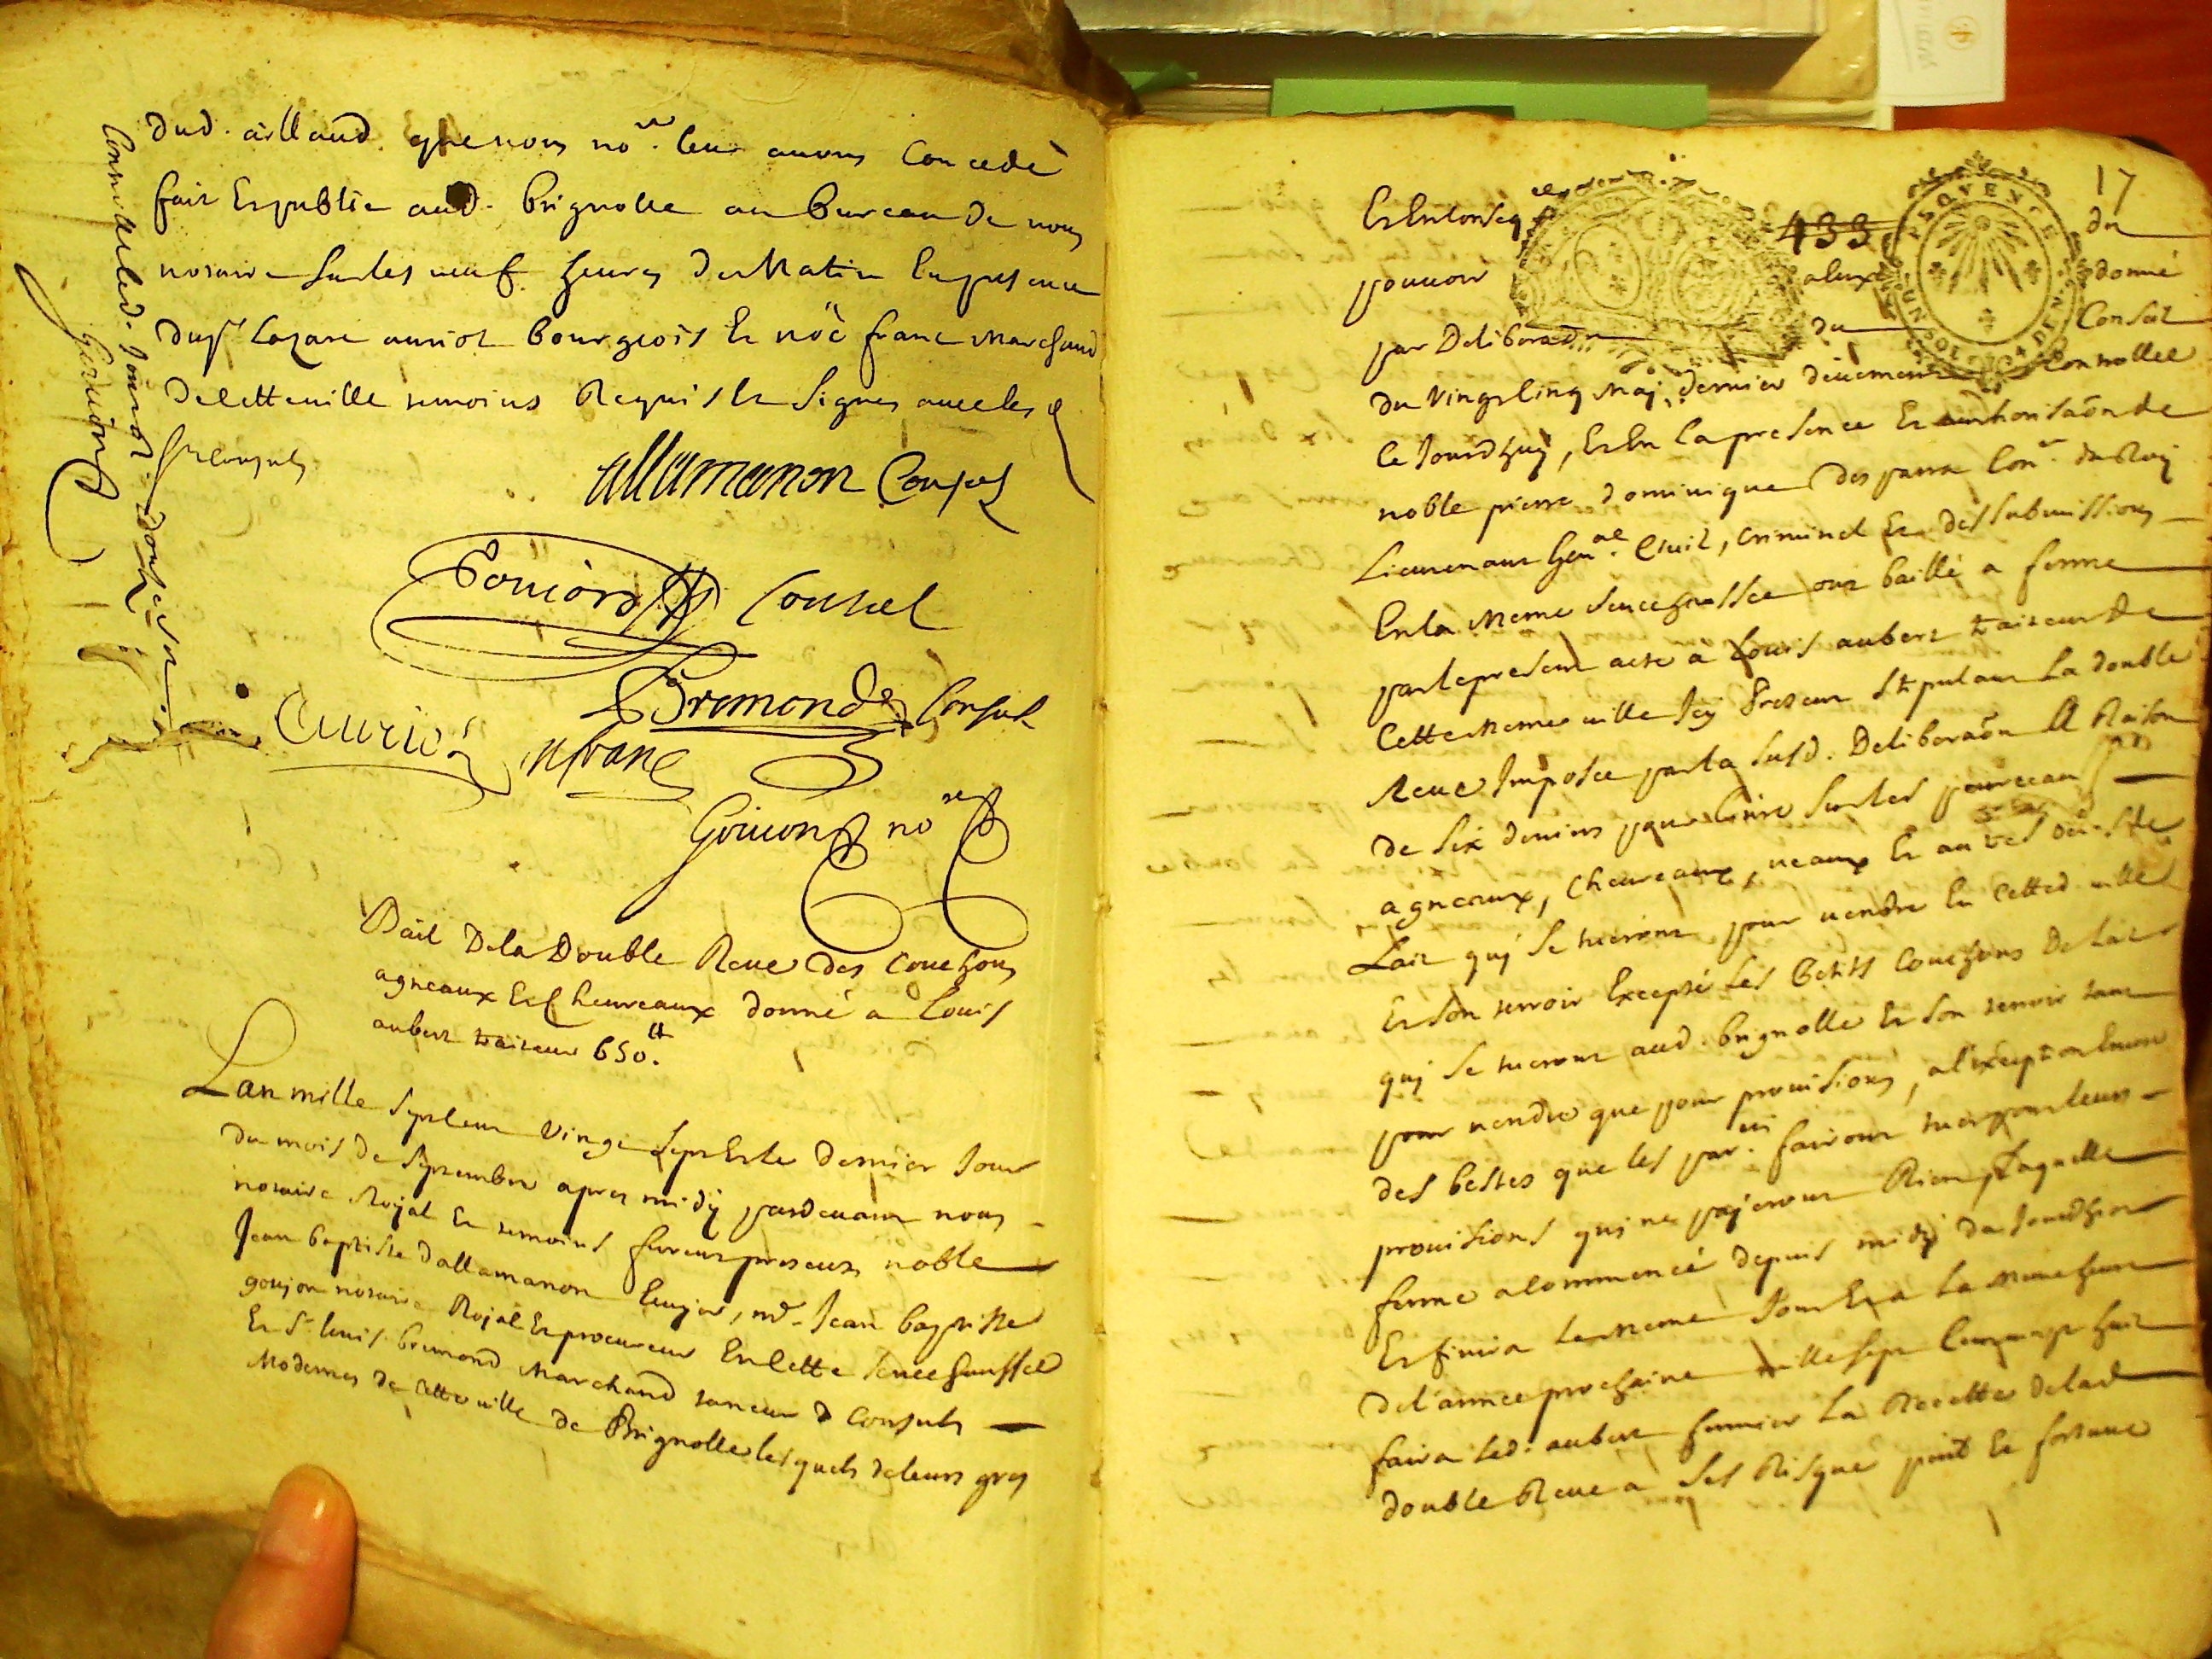 dud. aillaud que nous no.re leur avons concedé
fait et publié aud. Brignolle au bureau de nous
notaire sur les neuf heures du matin en presence
du sr Lazare auriol bourgeois et noé franc marchand
de cette ville temoins requis et signes avec les
srs consuls
Controllé led. jour
allamanon Consul
Goujon Consul
Bremond Consul
Auriol
n franc
Goujon no.re
Bail de la Double Reve des Couchons
agneaux et Chevreaux donné a Louis
aubert traiteur 650.tt
L'an mille sept cent vingt sept et le dernier jour
du mois de septembre apres midÿ pardevant nous
notaire Royal et temoins furent presents noble
Jean baptiste d'allamanon Ecuyer, me. Jean baptiste
goujon notaire Royal et procureur en cette senechaussée
et Sr. Louis bremond Marchand taneur Consuls
Modernes de cette ville de Brignolle lesquels de leurs gres
17
433
PROVENCE
UN SOL
Et en conseq. du
pouvoir a eux donné
par Deliberaõn du Conseil
du vingt cinq may dernier deüement Controllée
ce jourdhuy, et en la presence et authorisaõn de
noble pierre dominique des parra Con.er du Roy
Lieutenant gen.al Civil, Criminel et des submissions
en la meme senechaussée ont baillé a ferme
par le present acte a Louis aubert traiteur de
cette meme ville Icy present stipulant La double
Reve Imposée par la susd. Deliberaõn a Raison
de six deniers pour livre sur les pourceaux
agneaux, chevreaux, veaux et autres de
Lait quj se tueront pour vendre en cetted. ville
et son terroir Excepté les petits Couchons de lait
quj se tueront aud. brignolle et son terroir tant
pour vendre que pour provisions, a l'exception encore
des bestes que les par.ers fairont tuer pour leurs
provisions qui ne payeront Rien, Laquelle
ferme a commencé depuis midÿ du jourdhier
et finira le meme jour et a la meme heure
de l'année prochaine mille sept cent vingt huit
faira led. aubert fermier La Recette de lad.
double Reve a ses Risque peril et fortune